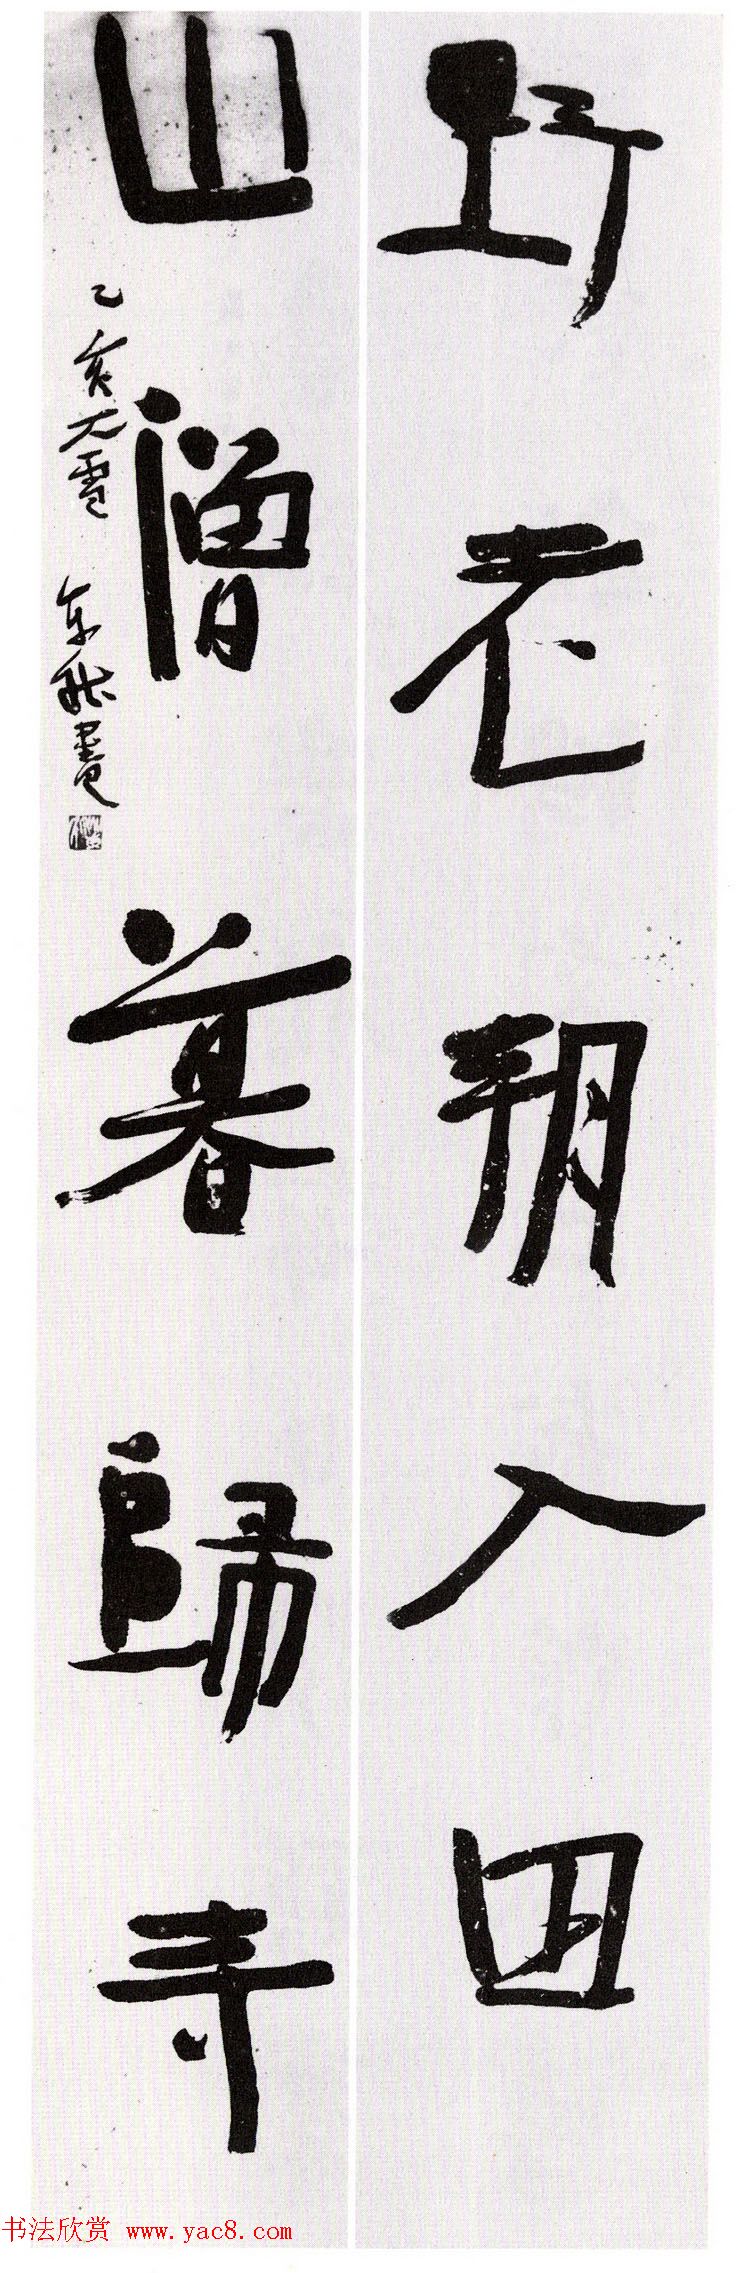 野老朝入田
山僧暮歸寺
乙亥大雪 書
书法欣赏 www.yac8.com